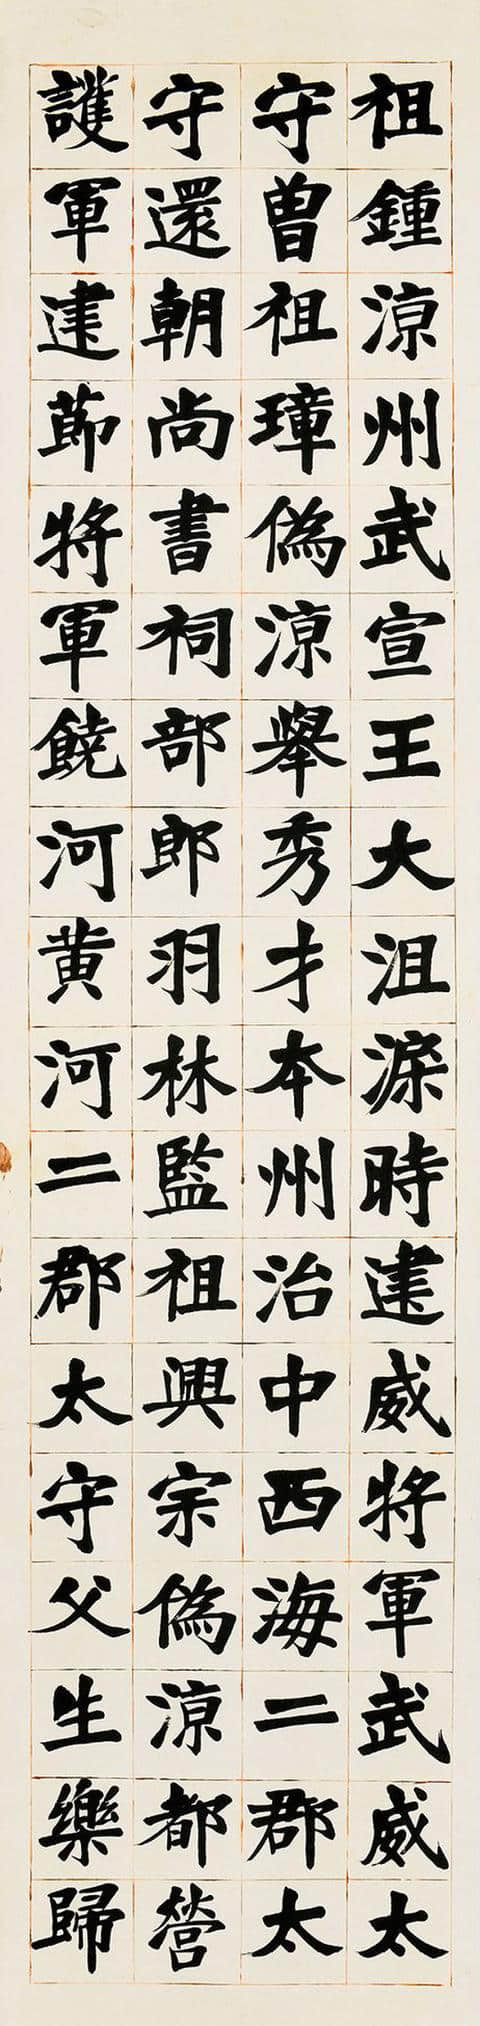 祖鍾涼州武宣王大沮渠時建威將軍武威太
守曾祖璋偽涼舉秀才本州治中西海二郡太
守還朝尚書祠部郎羽林監祖興宗偽涼都營
護軍建節將軍饒河黃河二郡太守父生樂歸